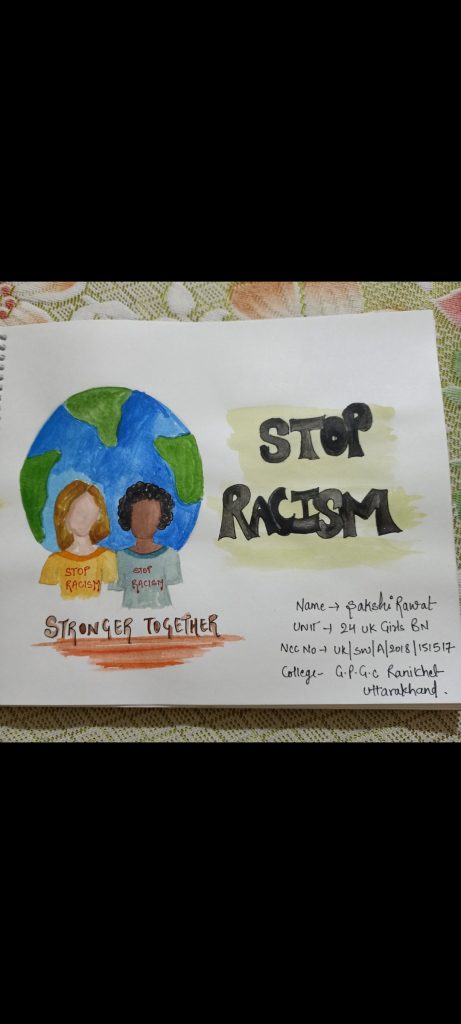 STOP
RACISM
STOP
RACISM
STOP
RACISM
STRONGER TOGETHER
Name → Sakshi Rawat
UNIT → 24 UK Girls BN
NCC No → UK/SW/A/2018/151517
College- G.P.G.C Ranikhet
Uttarakhand.